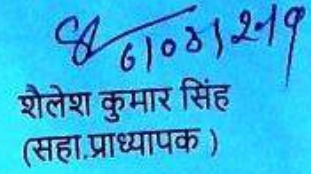 6/03/219
शैलेश कुमार सिंह
(सहा.प्राध्यापक )